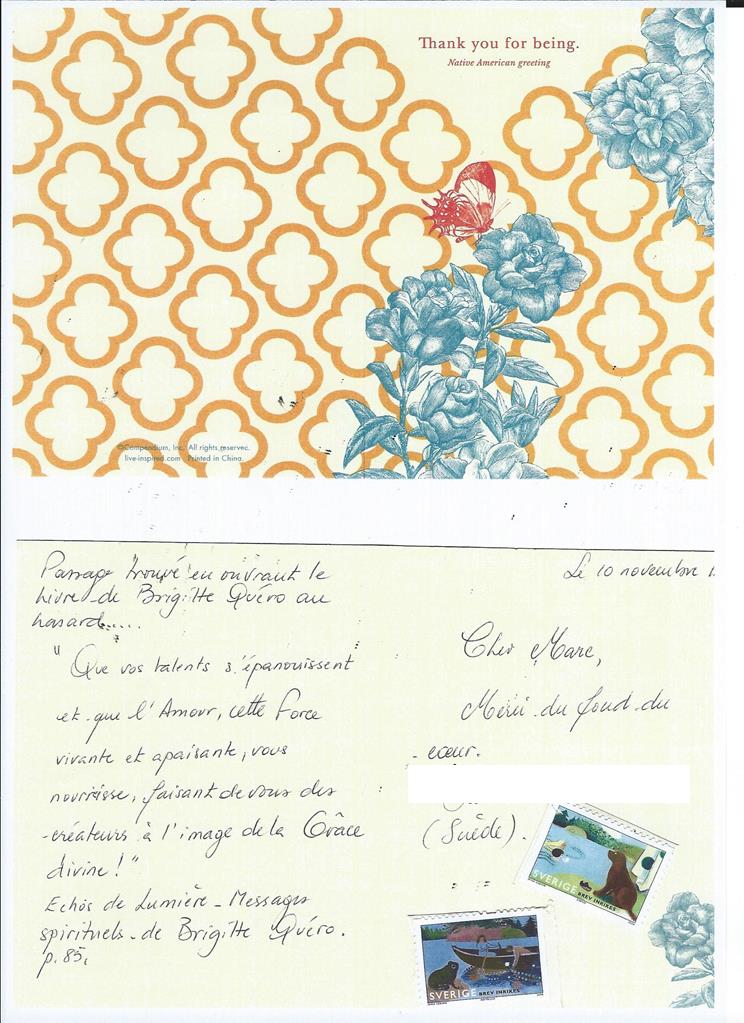 Thank you for being.
Native American greeting
©Compendium, Inc. All rights reserved.
live-inspired.com Printed in China.
Passage trouvé en ouvrant le
livre de Brigitte Quéro au
hasard....
"Que vos talents s'épanouissent
et que l'Amour, cette Force
vivante et apaisante, vous
nourrisse, faisant de vous des
créateurs à l'image de la Grâce
divine!"
Echos de Lumière - Messages
spirituels - de Brigitte Quéro.
p. 85.
Le 10 novembre
Cher Marc,
Merci du fond du
coeur.
(Suède).
SVERIGE BREV INRIKES
SVERIGE BREV INRIKES